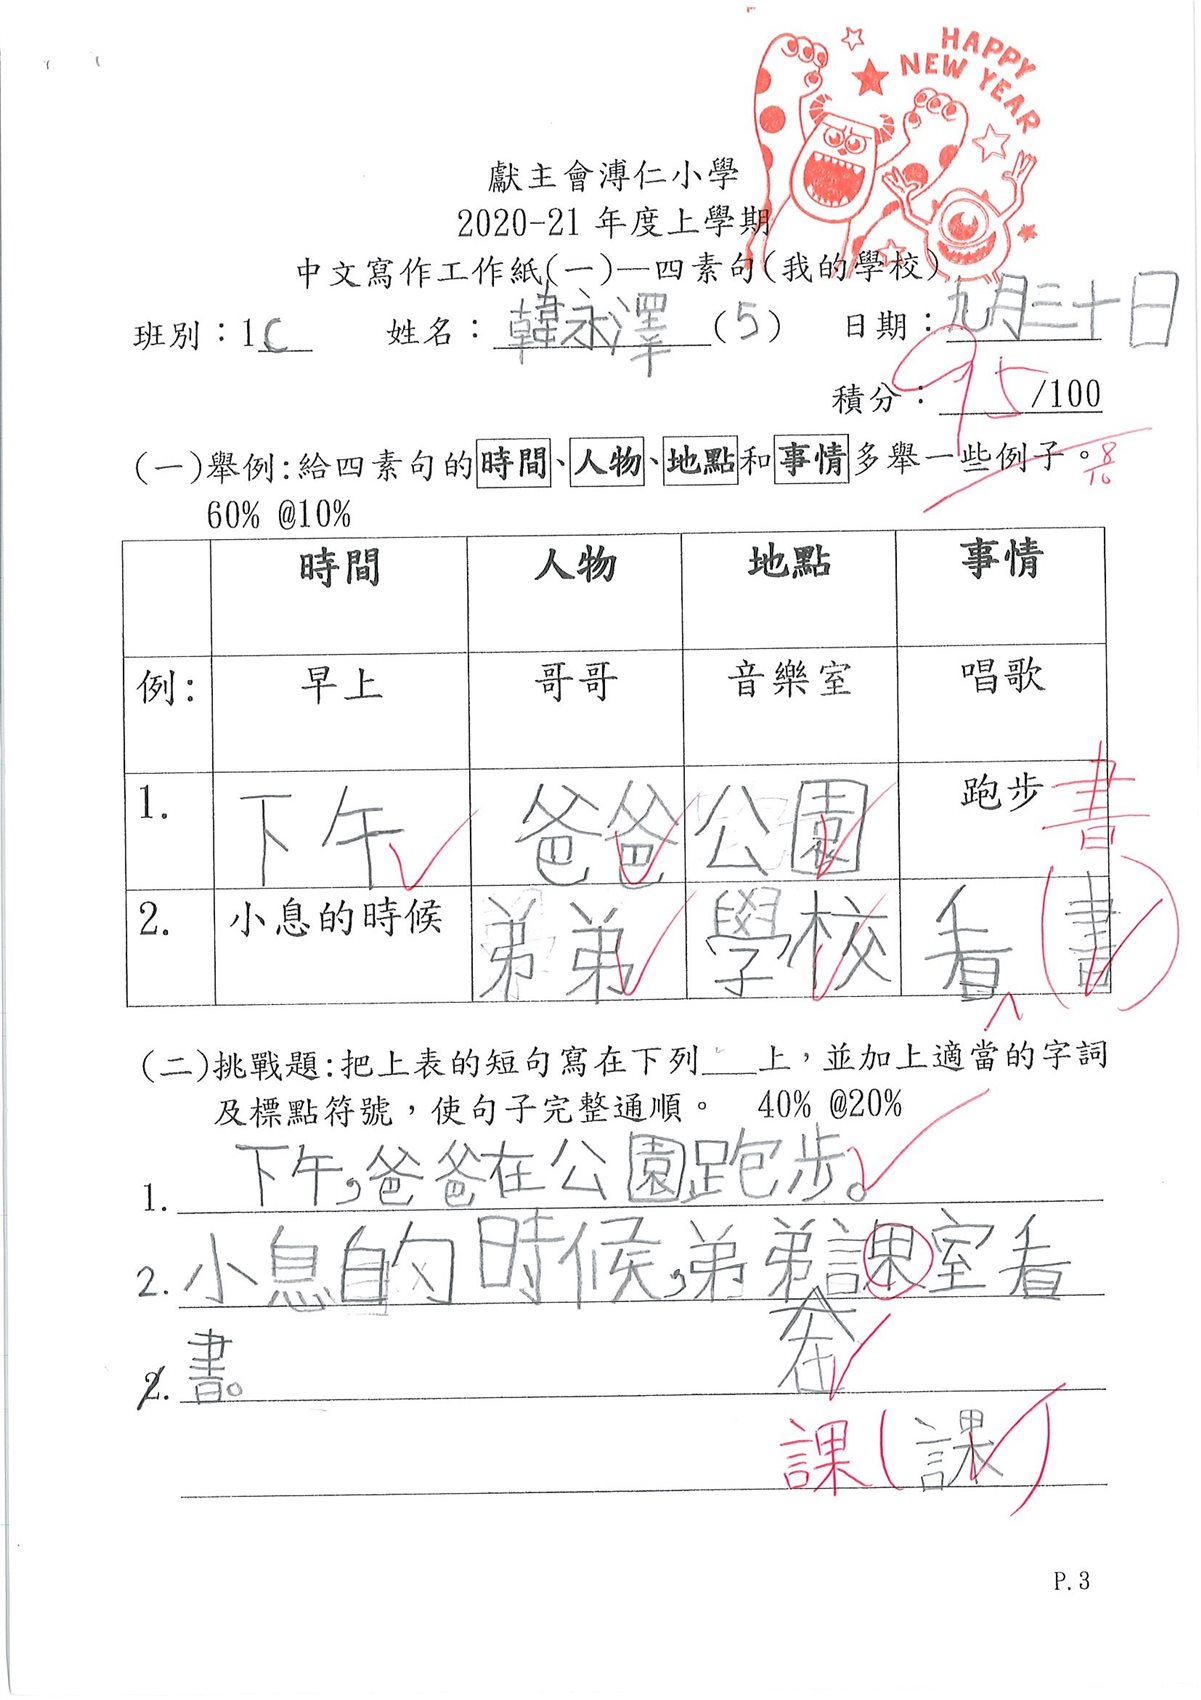 HAPPY
NEW YEAR
獻主會溥仁小學
2020-21 年度上學期
中文寫作工作紙(一)—四素句(我的學校)
班別：1C 姓名：韓永澤(5) 日期：九月三十日
積分：95/100
(一)舉例:給四素句的時間、人物、地點和事情多舉一些例子。 8/10
60% @10%
時間 人物 地點 事情
例: 早上 哥哥 音樂室 唱歌
1. 下午 爸爸 公園 跑步 書
2. 小息的時候 弟弟 學校 看(書)
(二)挑戰題:把上表的短句寫在下列___上，並加上適當的字詞
及標點符號，使句子完整通順。 40% @20%
1. 下午,爸爸在公園跑步。
2. 小息的時候,弟弟課室看
2. 書。 在
課(課)
P.3